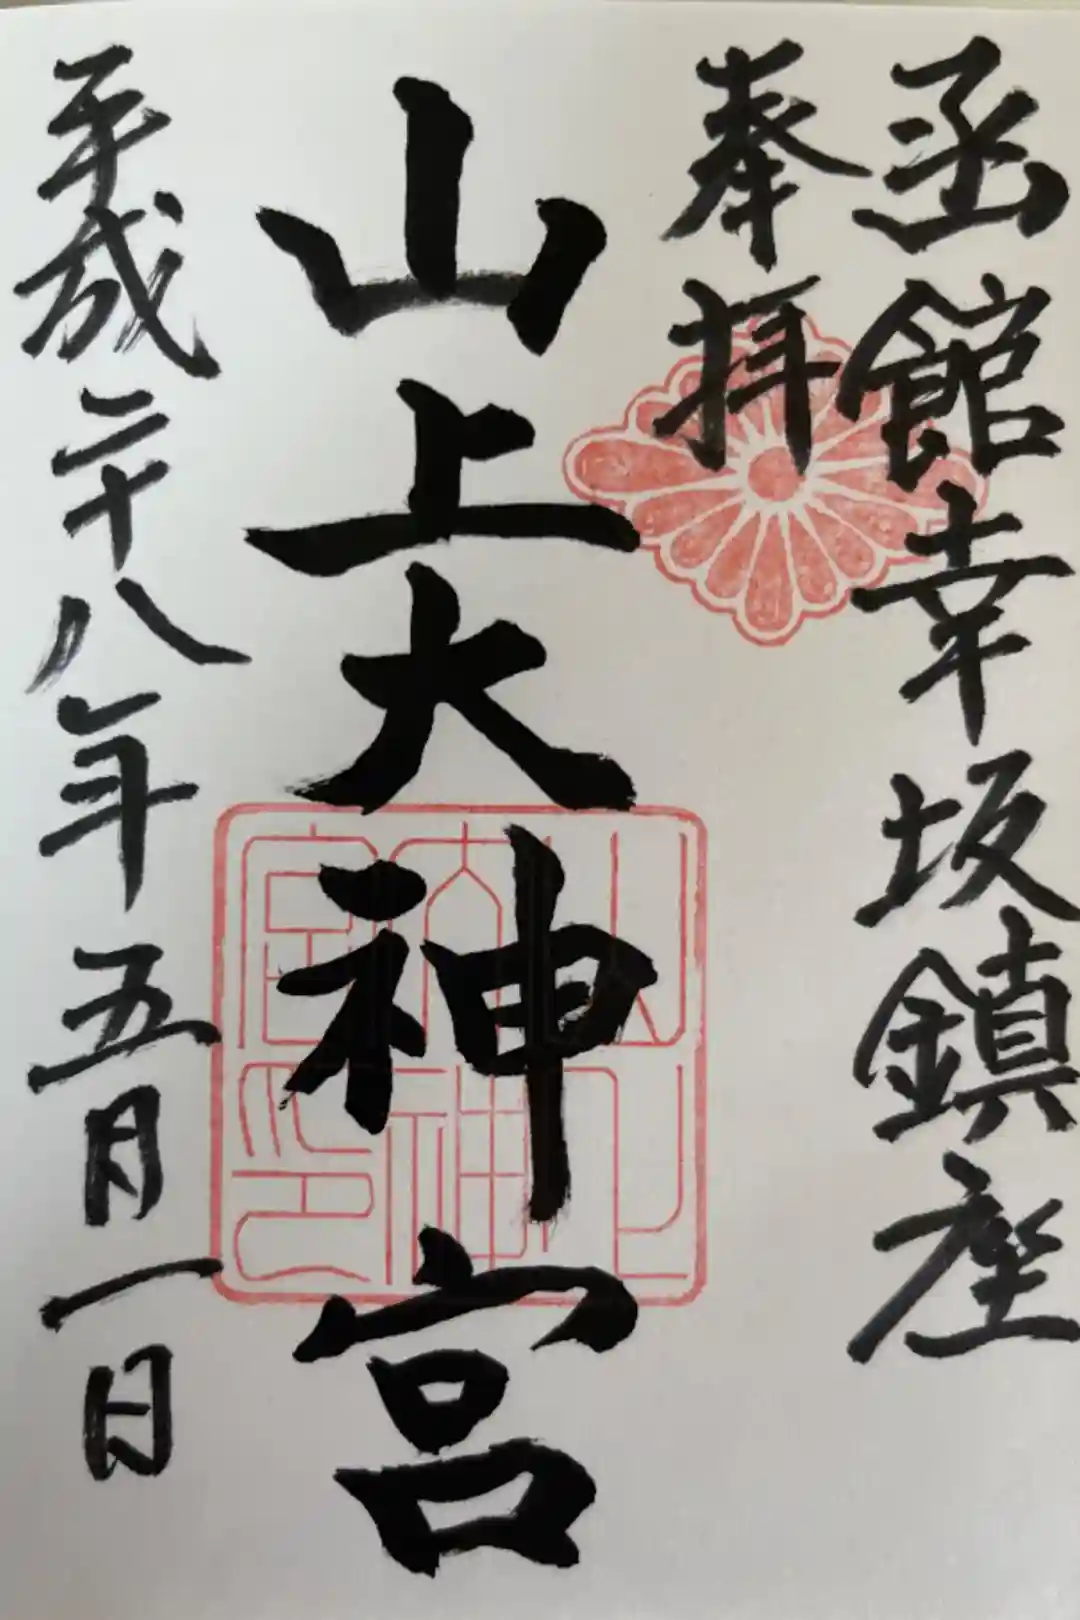 函館幸坂鎮座
奉拝
山上大神宮
平成二十八年五月一日